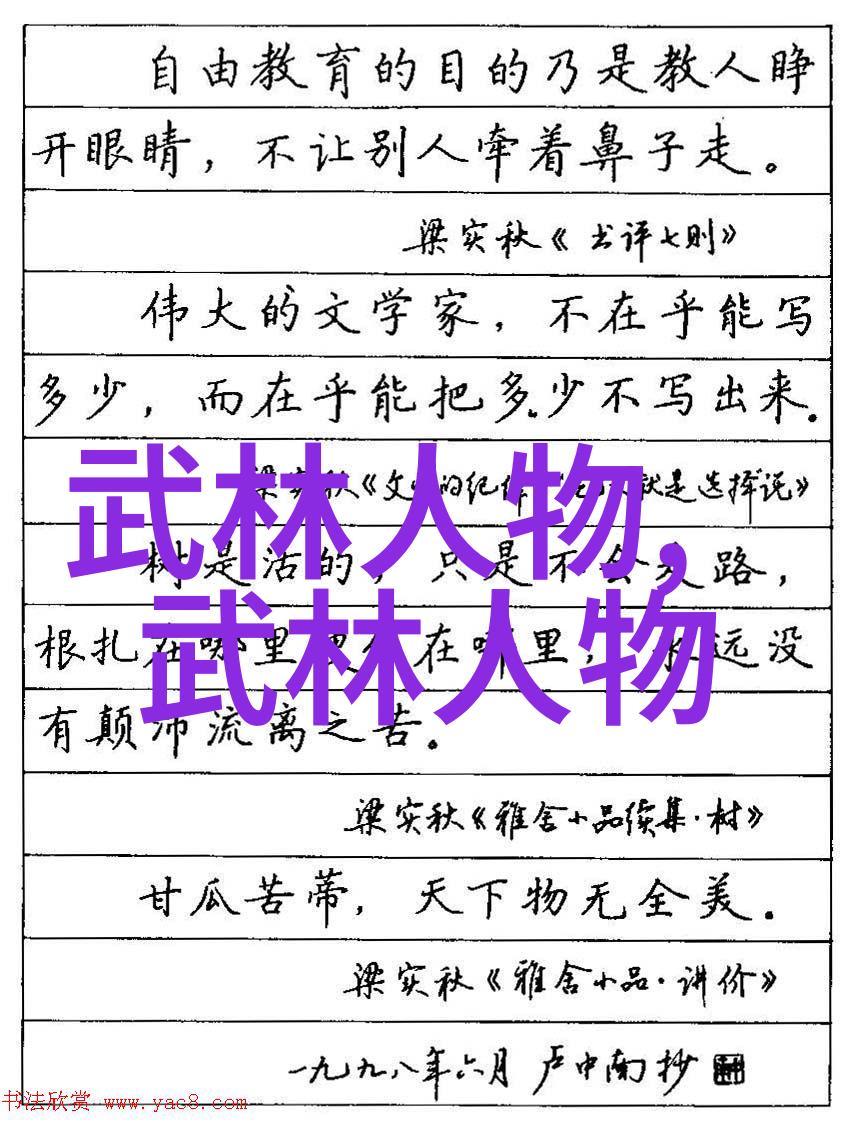 自由教育的目的乃是教人睁
开眼睛，不让别人牵着鼻子走。
梁实秋《书评七则》
伟大的文学家，不在乎能写
多少，而在乎能把多少不写出来。
梁实秋《文 的纪 是选择说》
武林人物，
树是活的，只是不会 路，
根扎在哪里 在哪里， 远没
武林人物
有颠沛流离之苦。
梁实秋《雅舍小品续集·树》
甘瓜苦蒂，天下物无全美。
梁实秋《雅舍小品·讲价》
一九九八年六月 卢中南抄
书法欣赏 www.yac8.com